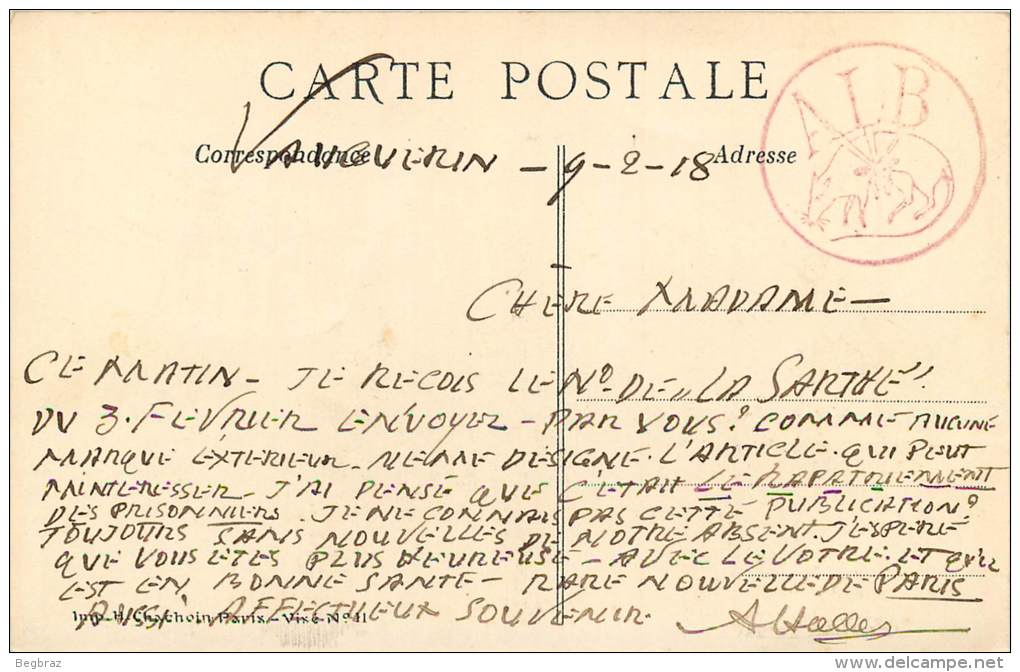 CARTE POSTALE
ALB
Correspondance
Adresse
VAUGUERIN - 9-2-18
CHÈRE MADAME -
CE MATIN - JE RECOIS LE No. DE „LA SARTHE".
DU 3. FEVRIER ENVOYER - PAR VOUS? COMME AUCUNE
MARQUE EXTERIEUR - NE ME DESIGNE. L'ARTICLE. QUI PEUT
M'INTERESSER - J'AI PENSÉ QUE C'ETAIT LE RAPATRIEMENT
DES PRISONNIERS. JE NE CONNAIS PAS CETTE PUBLICATION?
TOUJOURS SANS NOUVELLES DE NOTRE ABSENT. J'ESPERE
QUE VOUS ETES PLUS HEUREUSE - AVEC LE VOTRE. ET QU'IL
EST EN BONNE SANTE - RARE NOUVELLE DE PARIS
AUSSI AFFECTUEUX SOUVENIR.
Imp. H. Ch. Choin Paris - Visé No 11
Begbraz
www.delcampe.net